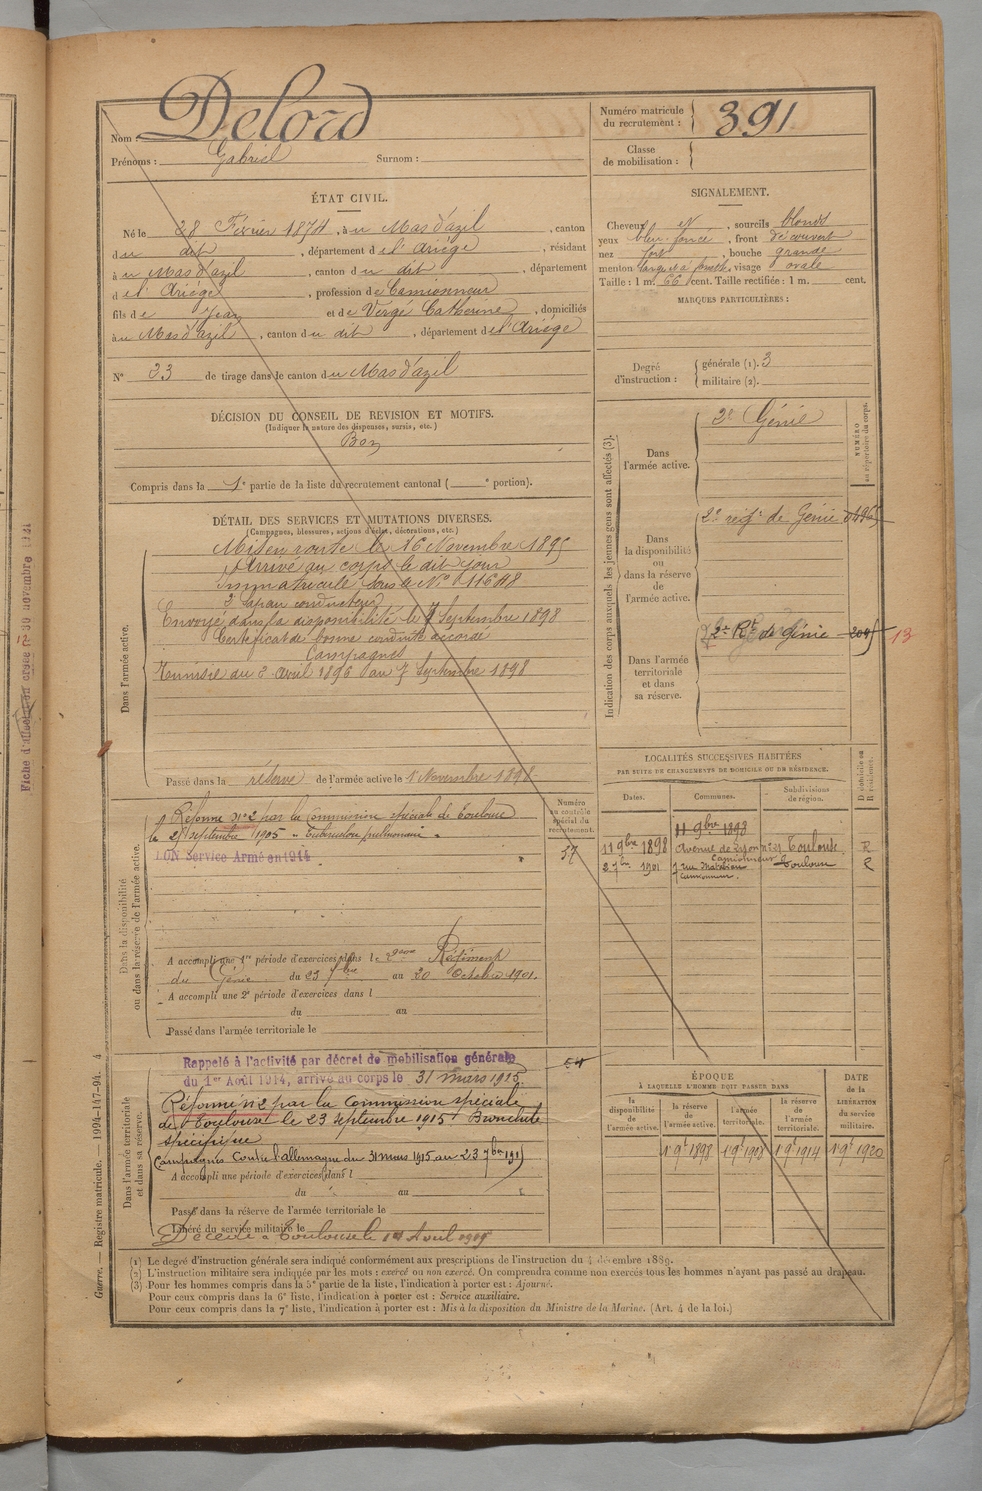 Nom : Delord
Prénoms : Gabriel Surnom :
Numéro matricule
du recrutement : 391
Classe
de mobilisation :
ÉTAT CIVIL.
Né le 28 Février 1874, à u Mas d'azil, canton
du dit, département de l'Ariège, résidant
à u Mas d'azil, canton du dit, département
d e l'Ariège, profession de Camionneur
fils de Jean et de Vergé Catherine, domiciliés
à u Mas d'azil, canton du dit, département de l'Ariège
N° 33 de tirage dans le canton du Mas d'azil
SIGNALEMENT.
Cheveux et, sourcils blonds
yeux bleu foncé, front découvert
nez fort, bouche grande
menton large et à fossette, visage ovale
Taille : 1 m. 66 cent. Taille rectifiée : 1 m. cent.
MARQUES PARTICULIÈRES :
Degré
d'instruction : générale (1). 3
militaire (2).
DÉCISION DU CONSEIL DE REVISION ET MOTIFS.
(Indiquer la nature des dispenses, sursis, etc.)
Bon
Compris dans la 1e partie de la liste du recrutement cantonal ( e portion).
DÉTAIL DES SERVICES ET MUTATIONS DIVERSES.
(Campagnes, blessures, actions d'éclat, décorations, etc.)
Dans l'armée active.
Mis en route le 16 Novembre 1895
Arrivé au corps le dit jour
Immatriculé sous le N°
2e Sapeur conducteur
Envoyé dans la disponibilité le 7 Septembre 1898
Certificat de bonne conduite accordé
Campagnes
Tunisie du 2 avril 1896 au 7 Septembre 1898
Passé dans la réserve de l'armée active le 1 Novembre 1898
Indication des corps auxquels les jeunes gens sont affectés (3).
NUMÉRO
au répertoire du corps.
Dans
l'armée active.
2e Génie
Dans
la disponibilité
ou
dans la réserve
de
l'armée active.
2e régt de Génie
Dans l'armée
territoriale
et dans
sa réserve.
2e Rt de Génie 13
LOCALITÉS SUCCESSIVES HABITÉES
PAR SUITE DE CHANGEMENTS DE DOMICILE OU DE RÉSIDENCE.
Dates.
Communes.
Subdivisions
de région.
D domicile ou
R résidence.
11 9bre 1898
11 9bre 1898 Avenue de Lyon Toulouse R
Camionneur
2 7bre 1901 rue Matabiau Toulouse R
camionneur.
Dans la disponibilité
ou dans la réserve de l'armée active.
Numéro
au contrôle
spécial du
recrutement.
37
Réformé n° 2 par la Commission spéciale de Toulouse
le septembre 1905 Tuberculose pulmonaire
BON Service Armé en 1914
A accompli une 1re période d'exercices dans le 2ème Régiment
du Génie du 23 7bre au 20 Octobre 1901.
A accompli une 2e période d'exercices dans l
du au
Passé dans l'armée territoriale le
Dans l'armée territoriale
et dans sa réserve.
Rappelé à l'activité par décret de mobilisation générale
du 1er Août 1914, arrivé au corps le 31 mars 1915
Réformé n° 2 par la Commission spéciale
de Toulouse le 23 septembre 1915 Bronchite
spécifique
Campagnes Contre l'allemagne du 31 mars 1915 au 23 7bre 1915
A accompli une période d'exercices dans l
du au
Passé dans la réserve de l'armée territoriale le
Libéré du service militaire le
Décédé à Toulouse le Avril
ÉPOQUE
À LAQUELLE L'HOMME DOIT PASSER DANS
la
disponibilité
de
l'armée active.
la réserve
de
l'armée active.
l'armée
territoriale.
la réserve
de
l'armée
territoriale.
DATE
de la
LIBÉRATION
du service
militaire.
1 9bre 1898
1 9bre 1908
1 9bre 1914
1 9bre 1920
(1) Le degré d'instruction générale sera indiqué conformément aux prescriptions de l'instruction du 4 décembre 1889.
(2) L'instruction militaire sera indiquée par les mots : exercé ou non exercé. On comprendra comme non exercés tous les hommes n'ayant pas passé au drapeau.
(3) Pour les hommes compris dans la 5e partie de la liste, l'indication à porter est : Ajourné.
Pour ceux compris dans la 6e liste, l'indication à porter est : Service auxiliaire.
Pour ceux compris dans la 7e liste, l'indication à porter est : Mis à la disposition du Ministre de la Marine. (Art. 4 de la loi.)
Guerre. — Registre matricule. — 1994-147-94. 4